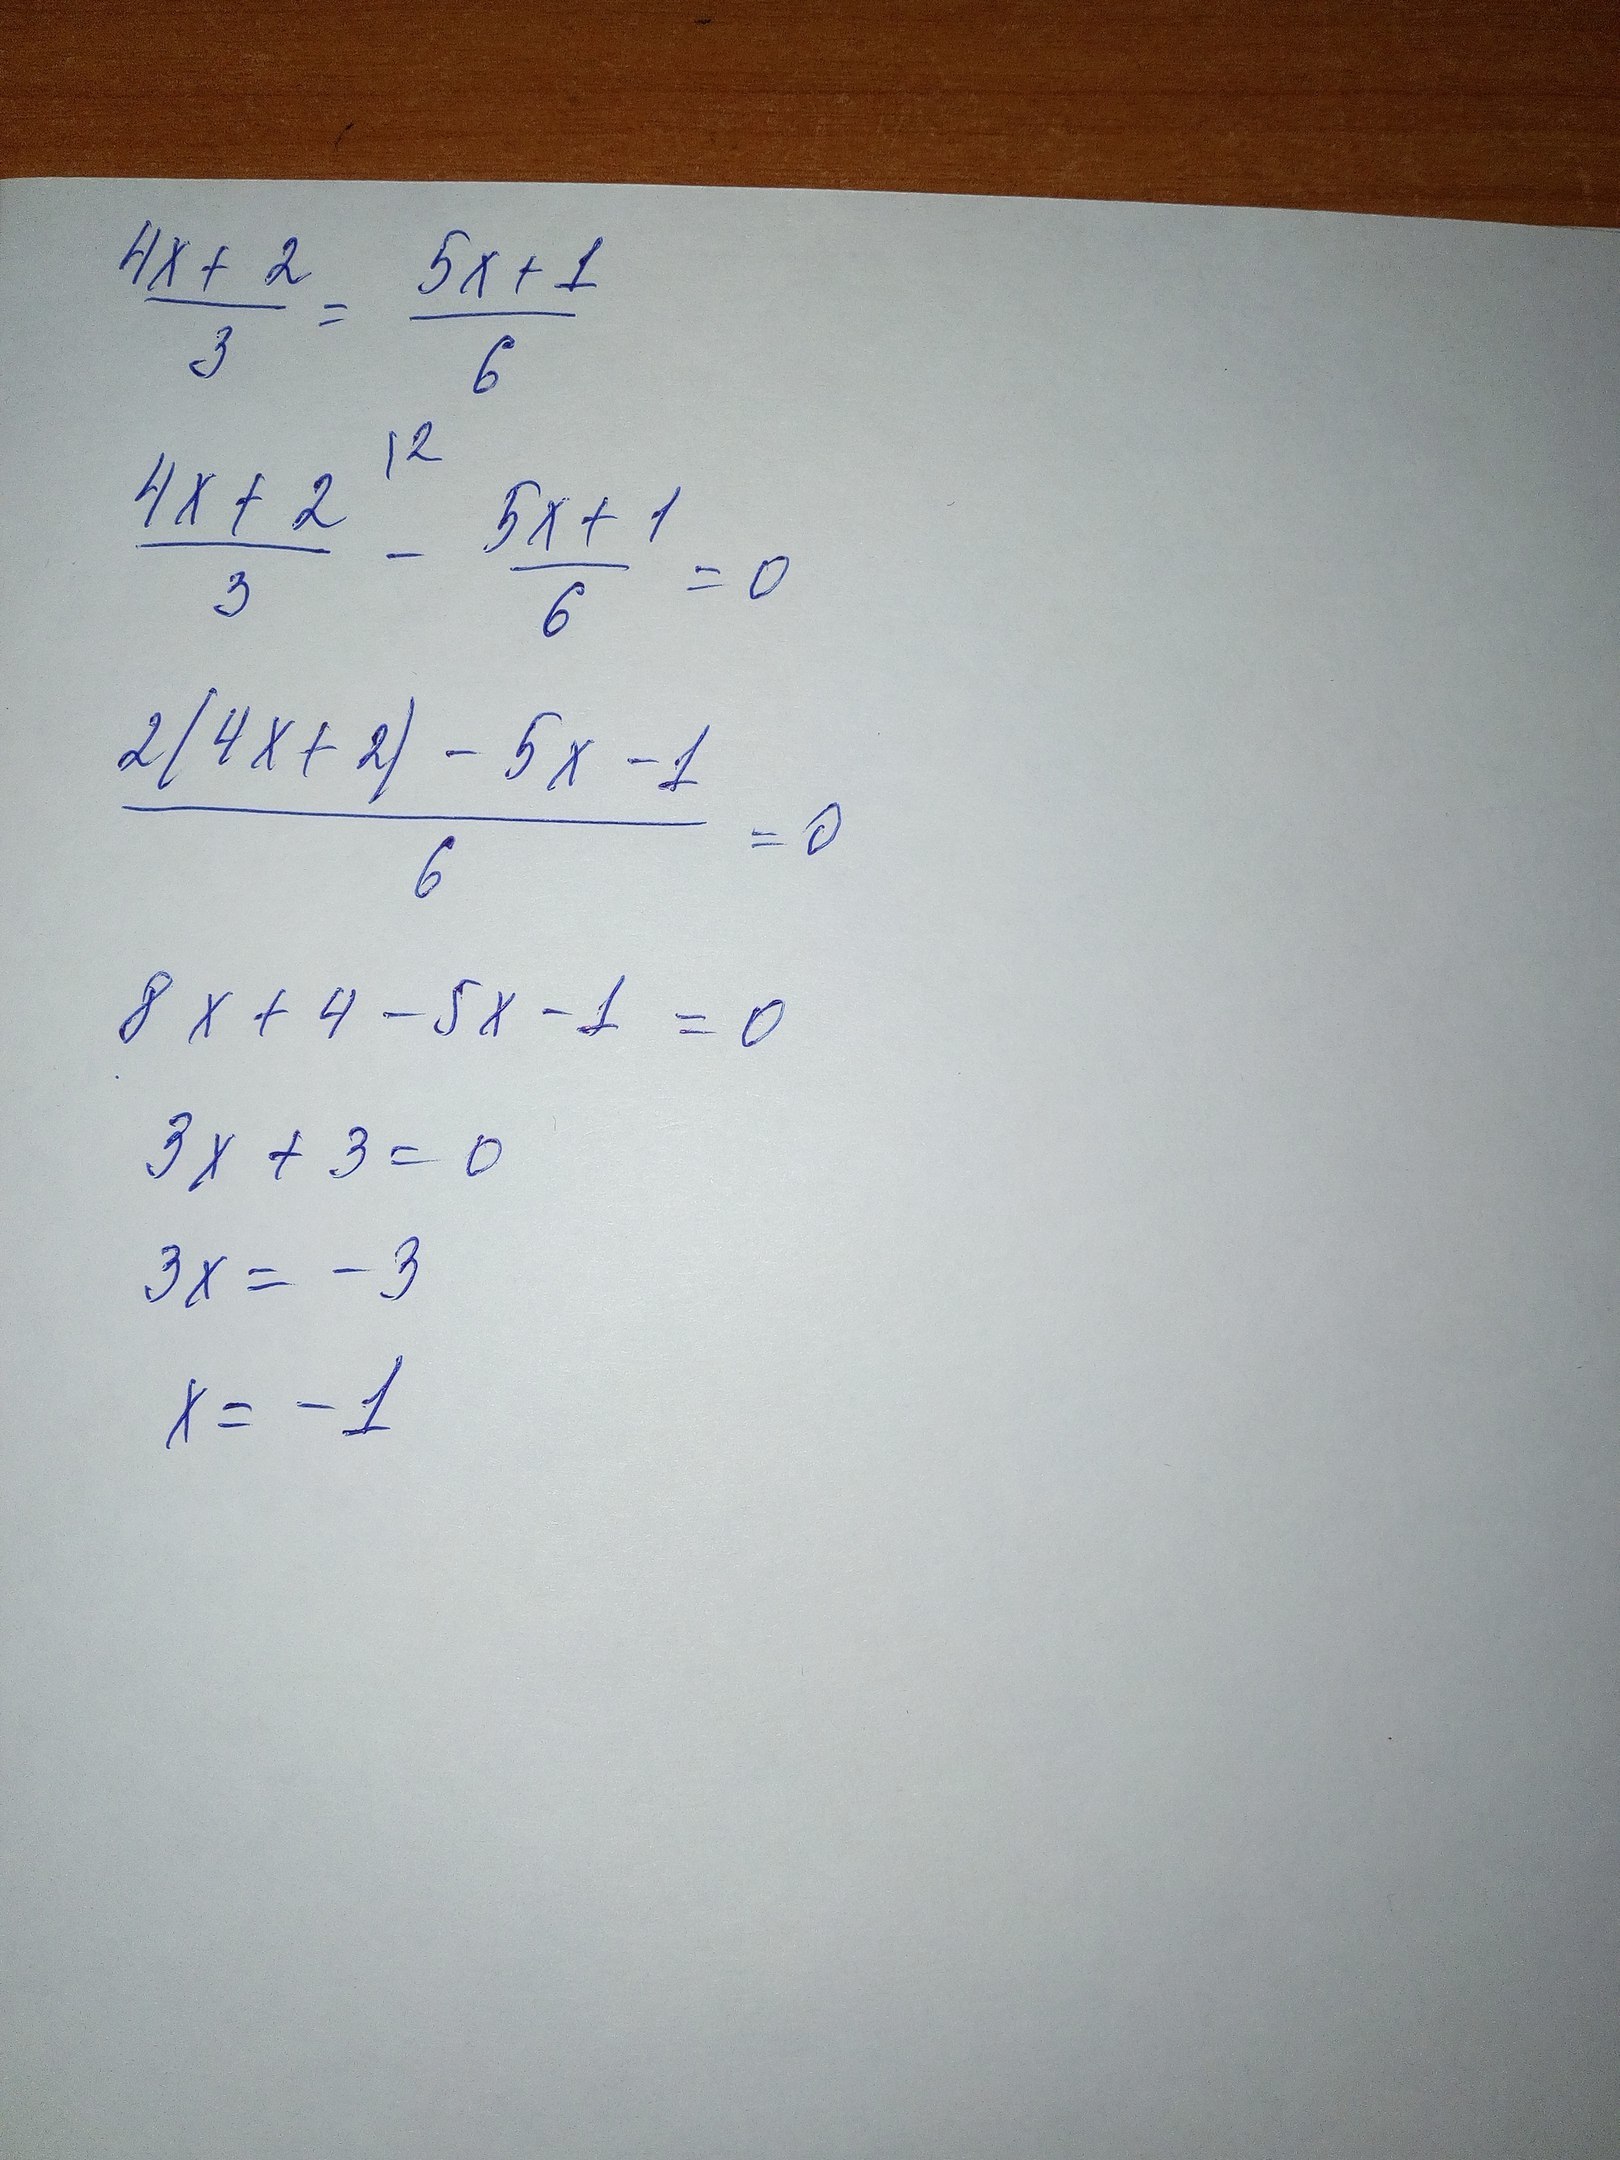 (4x+2)/3 = (5x+1)/6
(4x+2)/3 |2 - (5x+1)/6 = 0
(2(4x+2) - 5x - 1)/6 = 0
8x + 4 - 5x - 1 = 0
3x + 3 = 0
3x = -3
x = -1